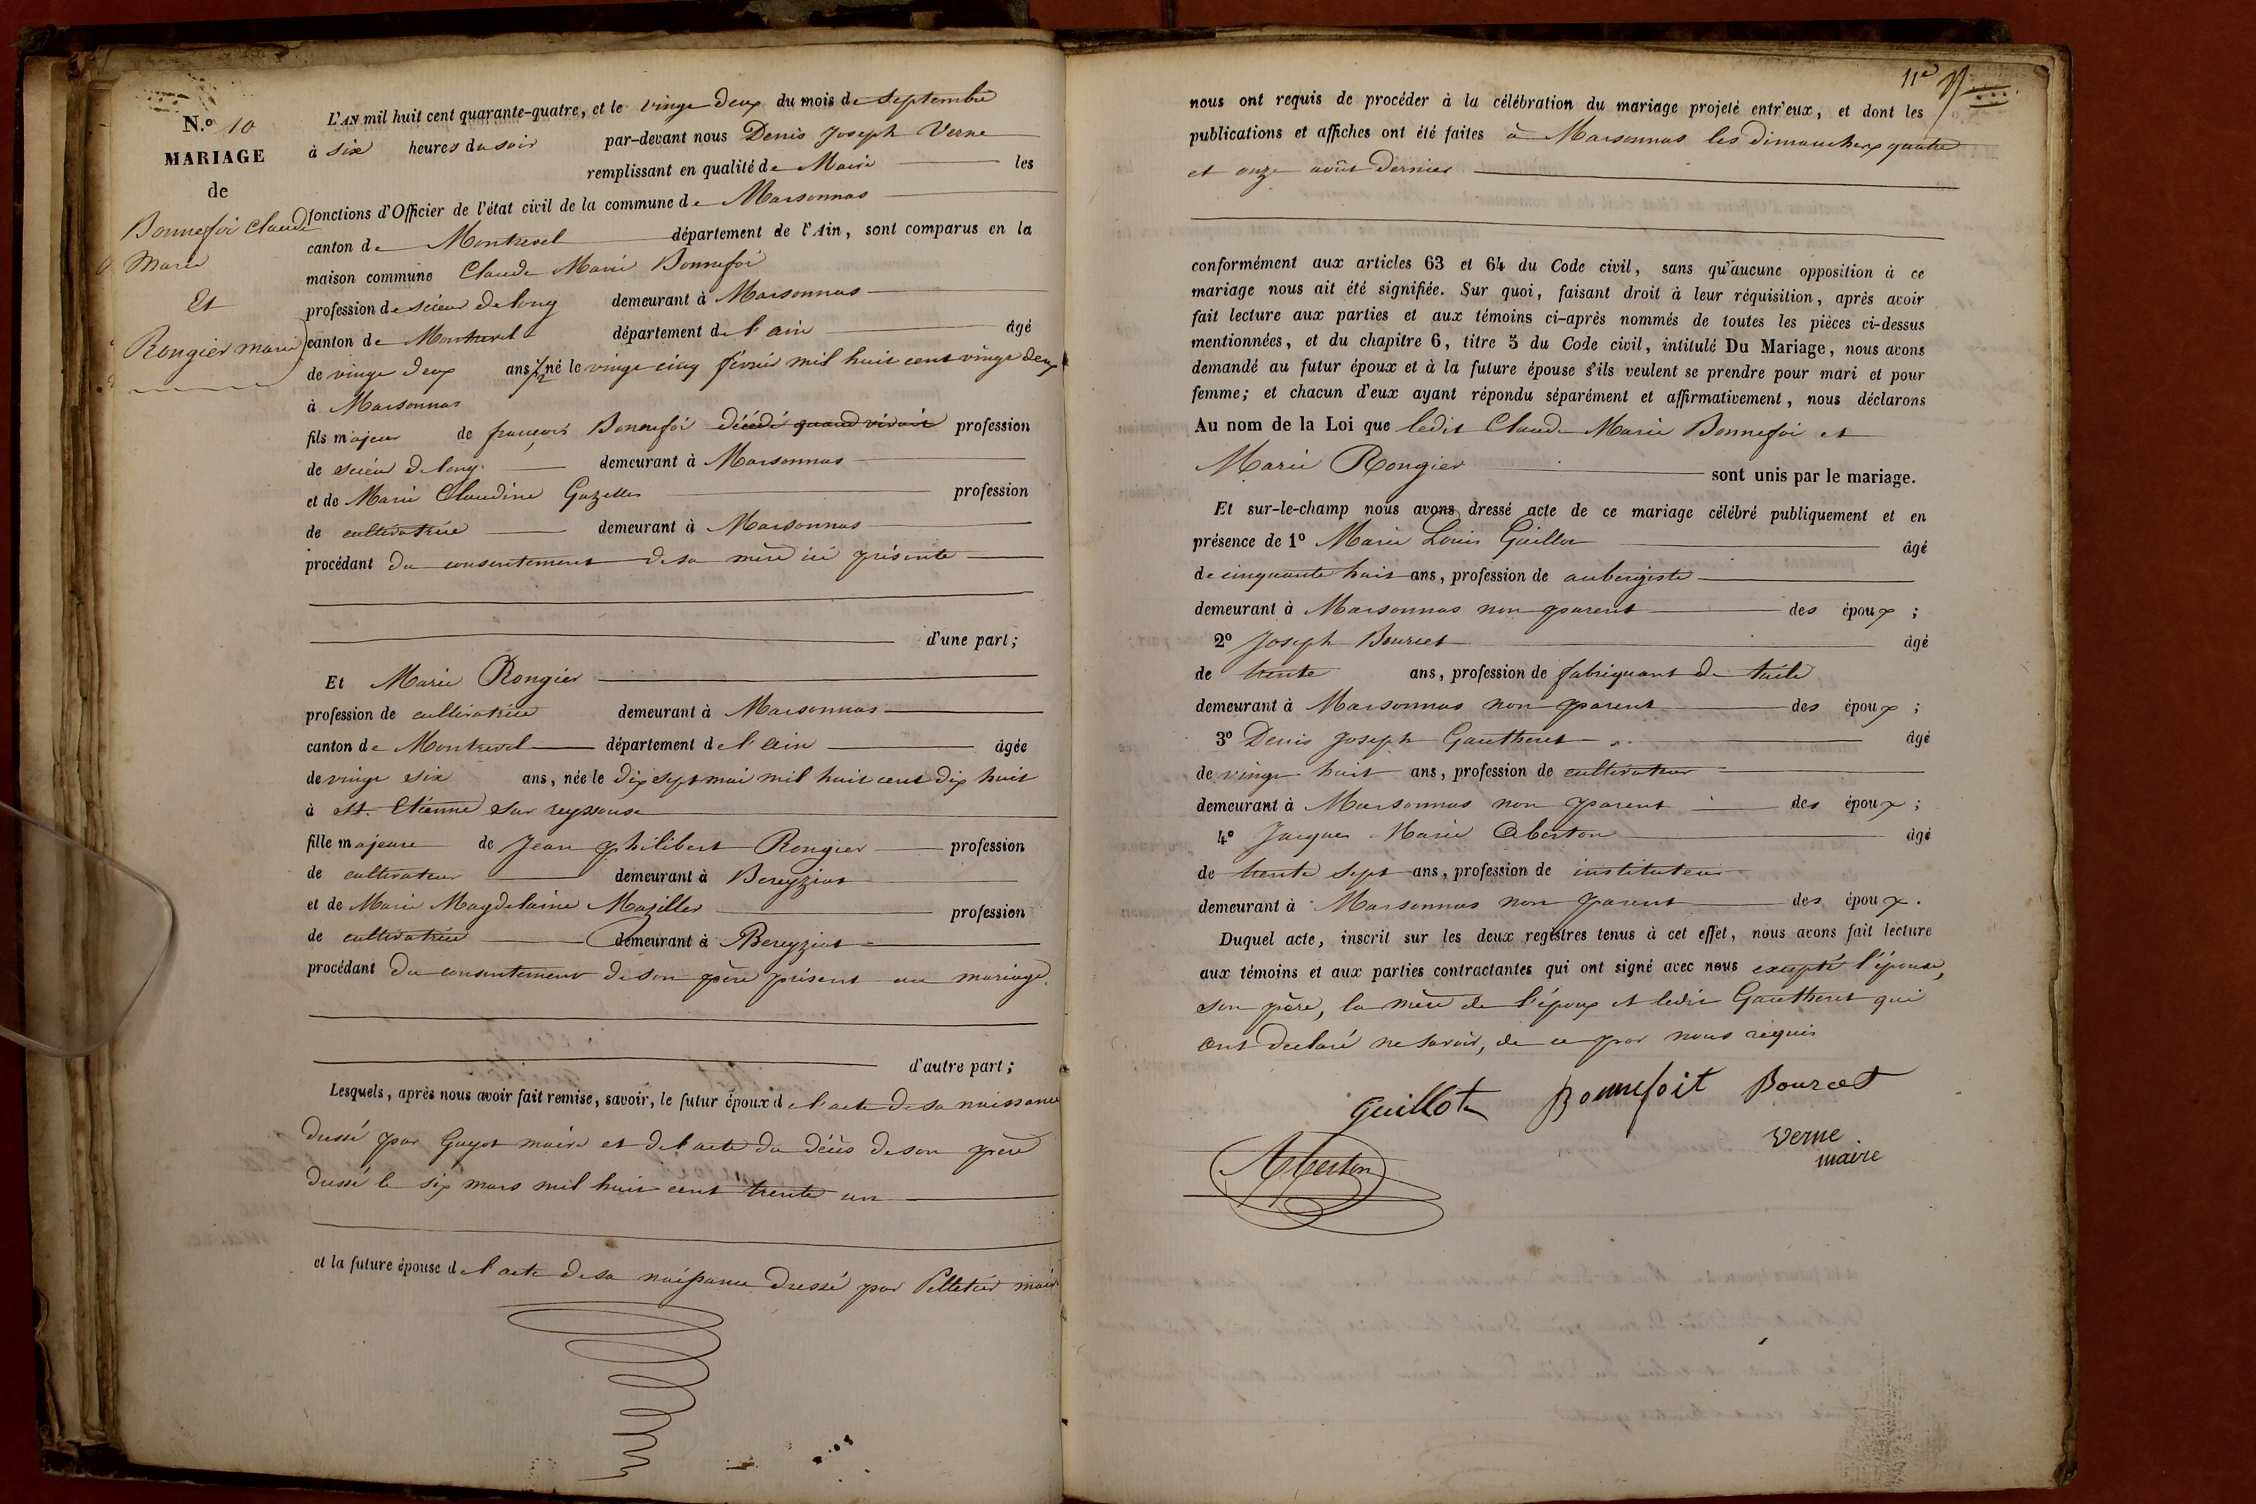 N.o 10
MARIAGE
de
Bonnefoi Claude
Marie
Et
Rongier marie
L'AN mil huit cent quarante-quatre, et le vingt deux du mois de Septembre
à six heures du soir par-devant nous Denis Joseph Verne
remplissant en qualité de Maire les
fonctions d'Officier de l'état civil de la commune de Marsonnas
canton de Montrevel département de l'Ain, sont comparus en la
maison commune Claude Marie Bonnefoi
profession de scieur de long demeurant à Marsonnas
canton de Montrevel département de l'ain âgé
de vingt deux ans 1/2 né le vingt cinq février mil huit cent vingt deux
à Marsonnas
fils majeur de françois Bonnefoi décédé quand vivait profession
de scieur de long demeurant à Marsonnas
et de Marie Claudine Gazelles profession
de cultivatrice demeurant à Marsonnas
procédant du consentement de sa mère ici présente
d'une part;
Et Marie Rongier
profession de cultivatrice demeurant à Marsonnas
canton de Montrevel département de l'ain âgée
de vingt six ans, née le dix sept mai mil huit cent dix huit
à St. Etienne sur reyssouse
fille majeure de Jean philibert Rongier profession
de cultivateur demeurant à Bereyziat
et de Marie Magdelaine Mazilles profession
de cultivatrice demeurant à Bereyziat
procédant du consentement de son père présent au mariage.
d'autre part;
Lesquels, après nous avoir fait remise, savoir, le futur époux de l'acte de sa naissance
dressé par Guyot maire et de l'acte du décès de son père
dressé le six mars mil huit cent trente un
et la future épouse de l'acte de sa naissance dressé par Pelletier maire
11e
nous ont requis de procéder à la célébration du mariage projeté entr'eux, et dont les
publications et affiches ont été faites à Marsonnas les dimanches quatre
et onze août dernier
conformément aux articles 63 et 64 du Code civil, sans qu'aucune opposition à ce
mariage nous ait été signifiée. Sur quoi, faisant droit à leur réquisition, après avoir
fait lecture aux parties et aux témoins ci-après nommés de toutes les pièces ci-dessus
mentionnées, et du chapitre 6, titre 5 du Code civil, intitulé Du Mariage, nous avons
demandé au futur époux et à la future épouse s'ils veulent se prendre pour mari et pour
femme; et chacun d'eux ayant répondu séparément et affirmativement, nous déclarons
Au nom de la Loi que ledit Claude Marie Bonnefoi et
Marie Rongier sont unis par le mariage.
Et sur-le-champ nous avons dressé acte de ce mariage célébré publiquement et en
présence de 1o Marie Louis Guillot âgé
de cinquante huit ans, profession de aubergiste
demeurant à Marsonnas non parent des époux;
2o Joseph Bourcet âgé
de trente ans, profession de fabriquant de tuile
demeurant à Marsonnas non parent des époux;
3o Denis Joseph Gautheret âgé
de vingt huit ans, profession de cultivateur
demeurant à Marsonnas non parent des époux;
4o Jacques Marie Aberton âgé
de trente sept ans, profession de instituteur
demeurant à Marsonnas non parent des époux.
Duquel acte, inscrit sur les deux registres tenus à cet effet, nous avons fait lecture
aux témoins et aux parties contractantes qui ont signé avec nous excepté l'épouse,
son père, la mère de l'époux et ledit Gautheret qui
ont declaré ne savoir, de ce par nous requis
Guillot Bonnefoit Bourcet
Verne
maire
Aberton